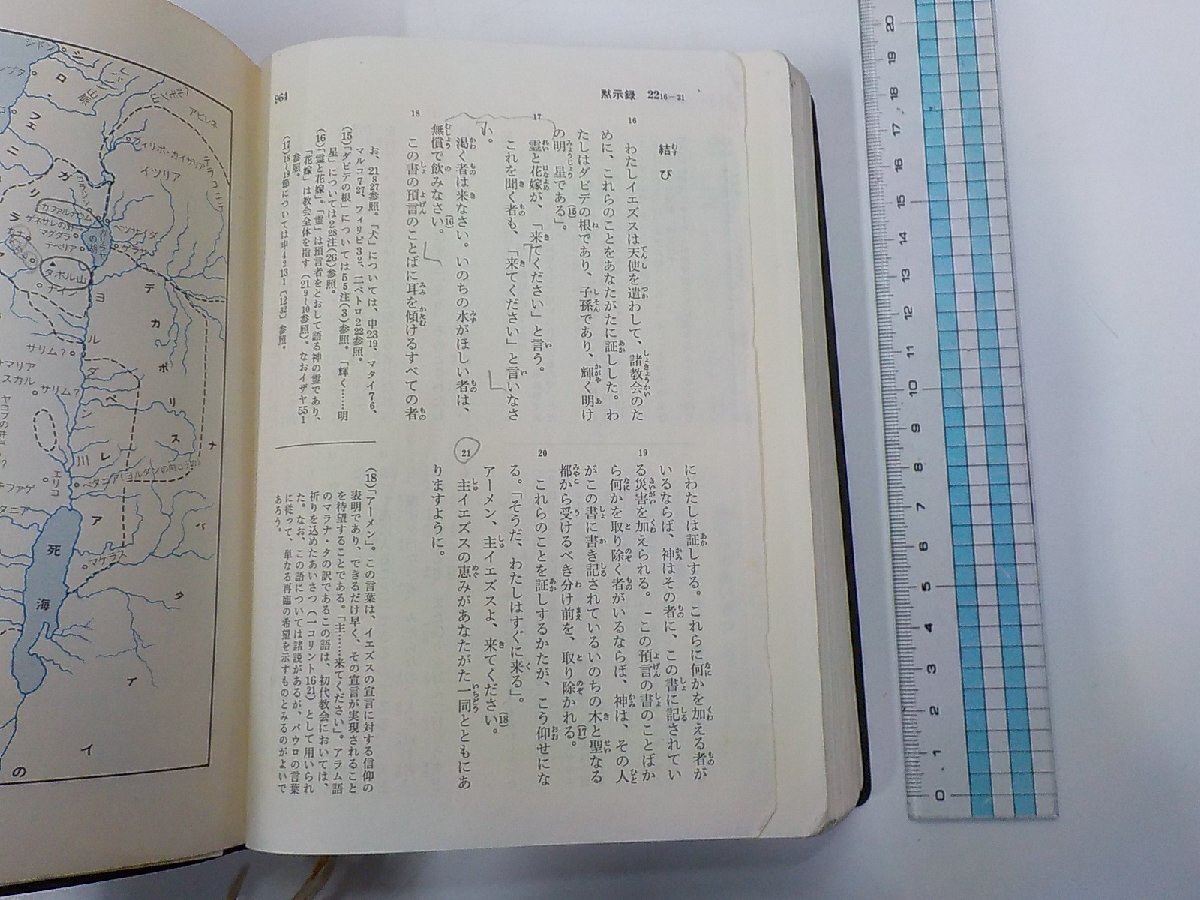 964
黙示録 22 16-21
結び
16
わたしイエズスは天使を遣わして、諸教会のた
めに、これらのことをあなたがたに証しした。わ
たしはダビデの根であり、子孫であり、輝く明け
の明星である」。(15)
17
霊と花嫁が、「来てください」と言う。
これを聞く者も、「来てください」と言いなさ
い。
渇く者は来なさい。いのちの水がほしい者は、
無償で飲みなさい。(16)
18
この書の預言のことばに耳を傾けるすべての者
お、21 8 27参照。「犬」については、申23 19、マタイ7 6、
マルコ7 27、フィリピ3 2、二ペトロ2 22参照。
(15)「ダビデの根」については5 5注(3)参照。「輝く……明
星」については2 28注(26)参照。
(16)「霊と花嫁」。「霊」は預言者をとおして語る神の霊であり、
「花嫁」は教会全体を指す(21 9-10参照)。なおイザヤ55 1
参照。
(17)18-19節については申4 2 13 1(12 32)参照。
にわたしは証しする。これらに何かを加える者が
いるならば、神はその者に、この書に記されてい
19
る災害を加えられる。この預言の書のことばか
ら何かを取り除く者がいるならば、神は、その人
がこの書に書き記されているいのちの木と聖なる
都から受けるべき分け前を、取り除かれる。(17)
20
これらのことを証しするかたが、こう仰せにな
る。「そうだ、わたしはすぐに来る」。
アーメン、主イエズスよ、来てください。(18)
21
主イエズスの恵みがあなたがた一同とともにあ
りますように。
(18)「アーメン」。この言葉は、イエズスの宣言に対する信仰の
表明であり、できるだけ早く、その宣言が実現されること
を待望することである。「主……来てください」。アラム語
のマラナ・タの訳であるこの語は、初代教会においては、
祈りを込めたあいさつ(一コリント16 22)として用いられ
た。なお、この語については諸説があるが、パウロの言葉
に従って、単なる再臨の希望を示すものとみるのがよいで
あろう。
シドン
フィリポ・カイザリア
アビレネ
イツリア
フェニ
ガリラ
カファルナウム
ゲネサレの野
マグダラ
テベリア
ベツサイダ
タボル山
ナイン
デカポリス
ヨルダン川
サリム?
サマリア
スカル
サリム?
エリコ
ベタニア
マケラス
死海
ナバタイ
の
0.1 2 3 4 5 6 7 8 9 10 11 12 13 14 15 16 17 18 19 20